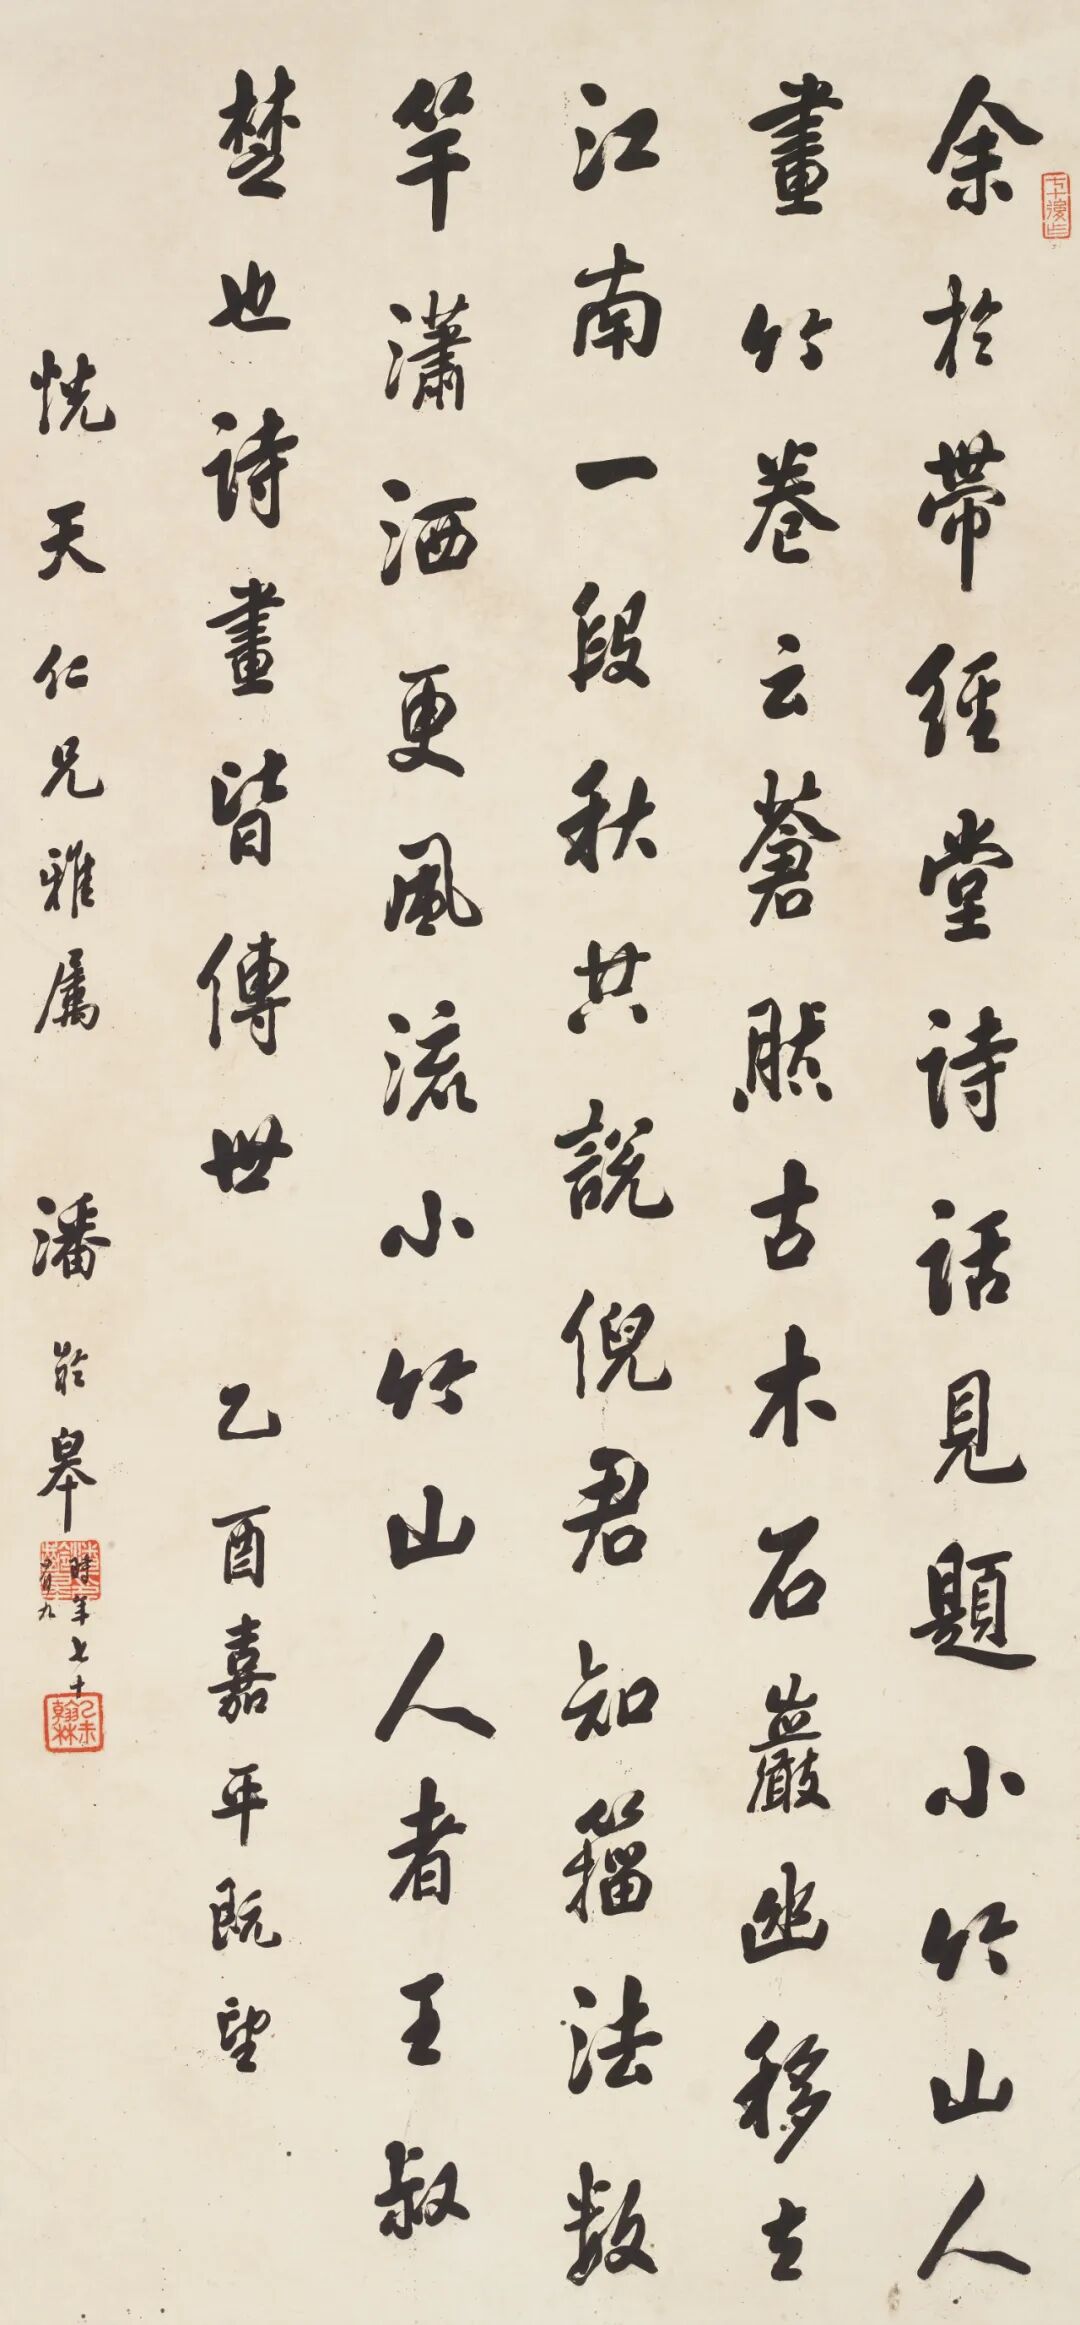 余於帶經堂詩話見題小竹山人
畫竹卷云蒼然古木石巖幽移去
江南一段秋共說倪君知籀法數
竿瀟洒更風流小竹山人者王叔
楚也詩畫皆傳世 乙酉嘉平既望
恍天仁兄雅属 潘齡皋 時年七十有九
乙未翰林